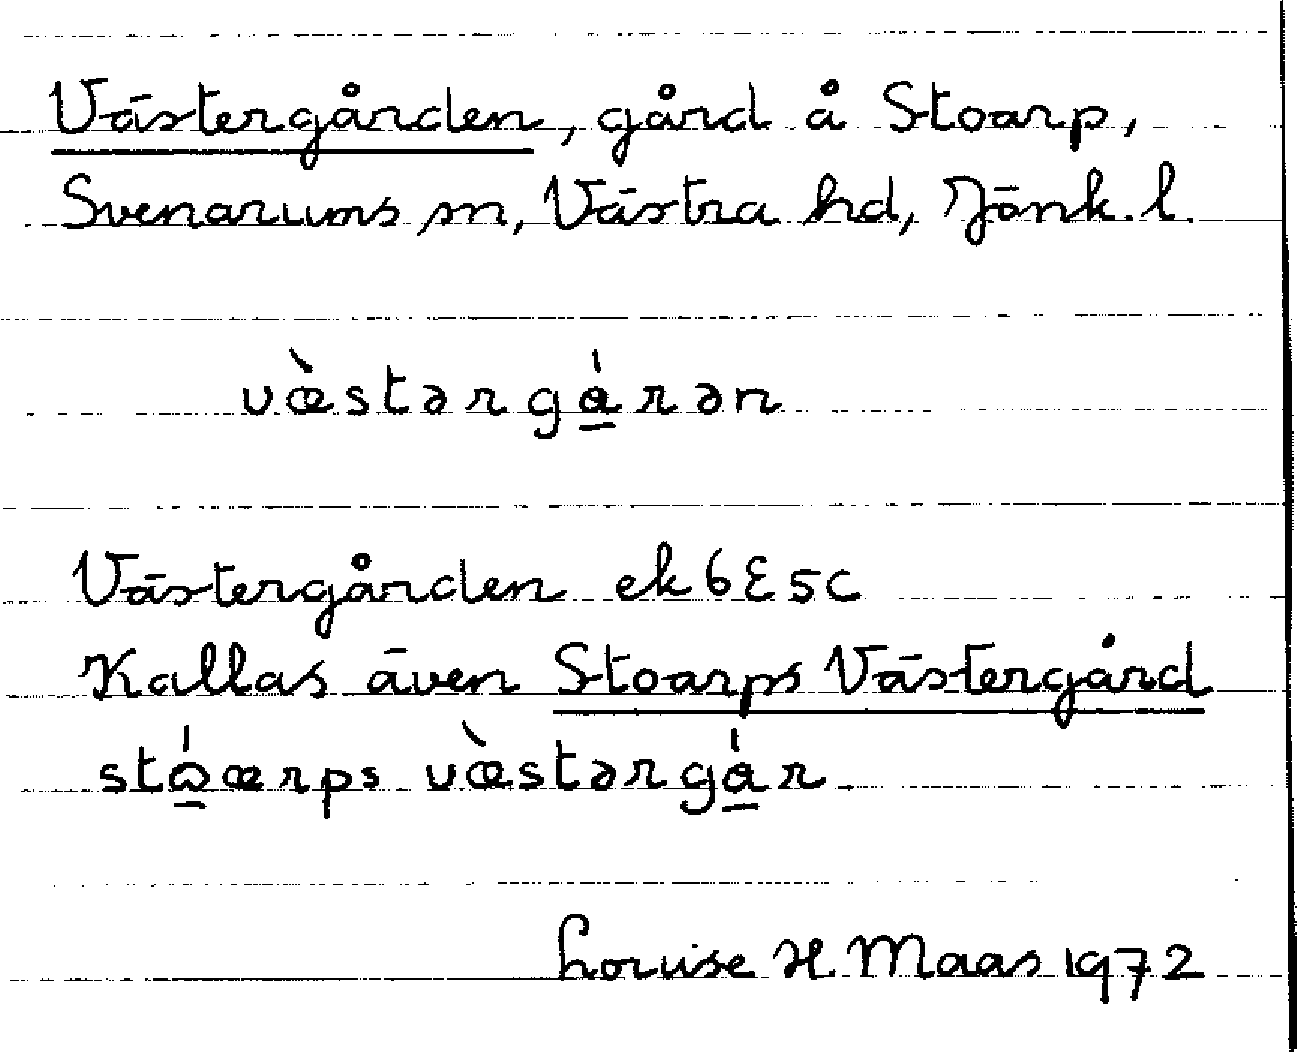 Västergården, gård å Stoarp,
Svenarums sn, Västra hd, Jönk. l.
væ̀stərgá̱rən
Västergården ek 6E5c
Kallas även Stoarps Västergård
stɷ̱́ærps væ̀stərgá̱r
Louise H Maas 1972